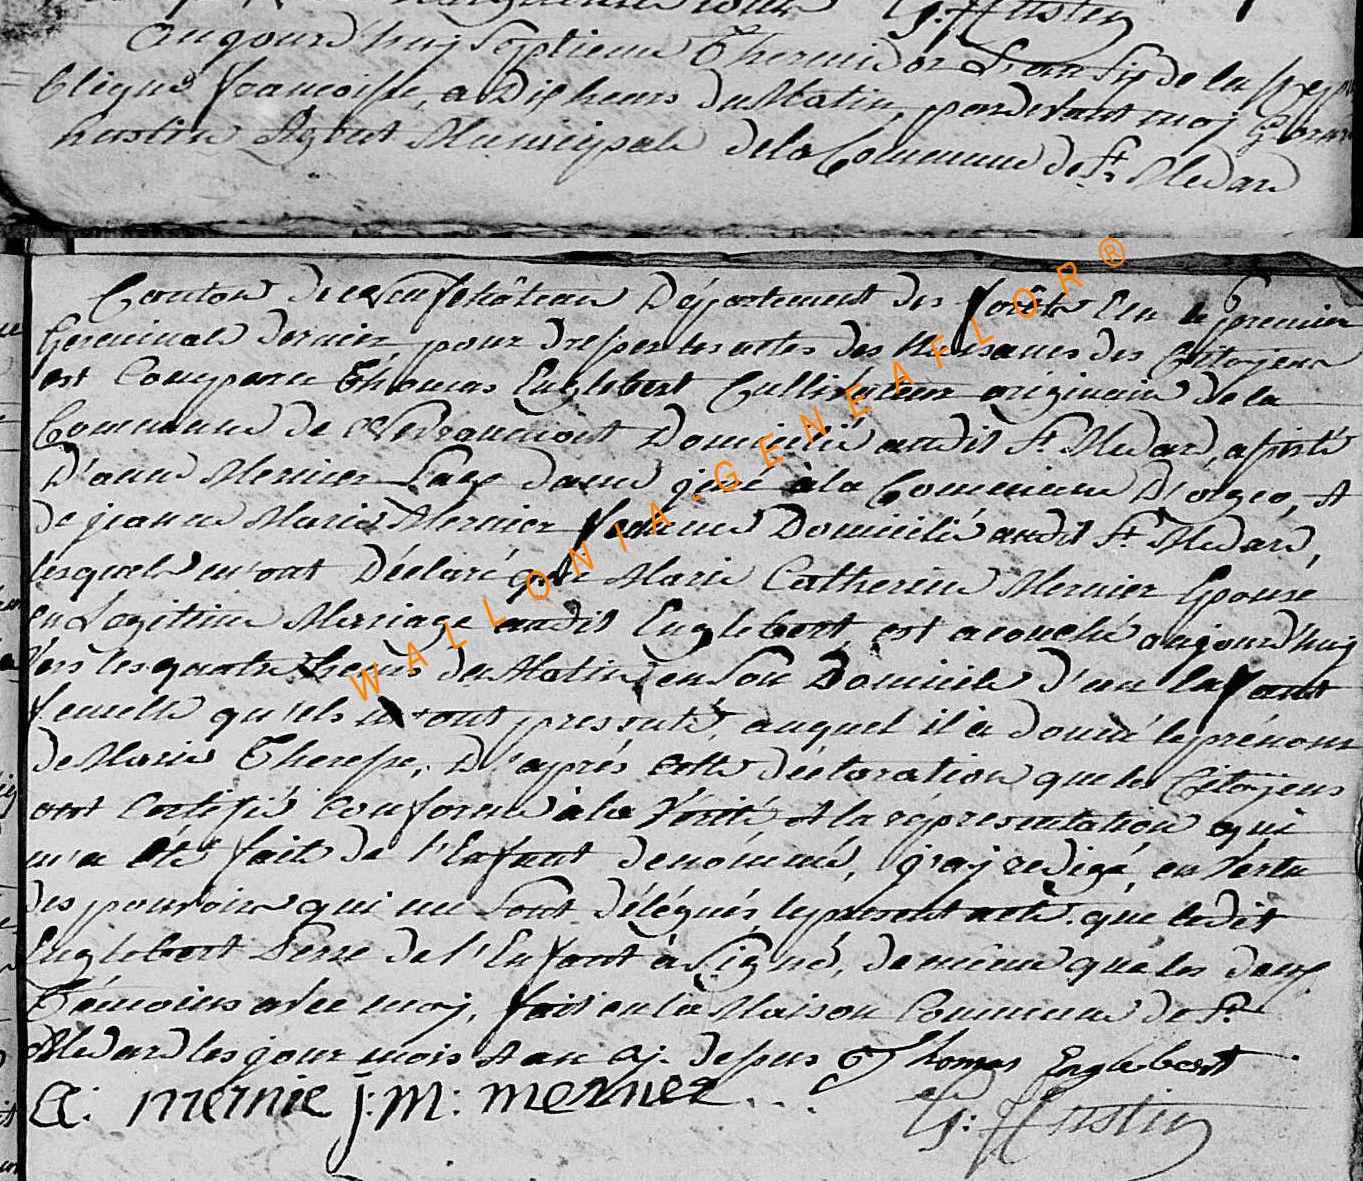 G: Hustin
aujourd'huy Septieme Thermidor L'an Six de la Repu
blique francoisse, a Dix heurs du Matin, pardevant moj Gerar
hustin Agent Municipale de la Commune de St. Medard
Canton de neufchâteau Département des forêts Elu le premier
Germinal dernier, pour dresser les actes des Naisances des Citoyens
est Comparu Thomas Englebert Cultivateur originair de la
Commune de Domicilié audit St. Medard, assisté
D'anne Mernier Lage dame à la Commune D'orgeo, &
de jeanne Marie Mernier femme Domicilié audit St. Medard,
lesquels m'ont Déclaré que Marie Catherine Mernier Epouse
en Legitime Mariage audit Englebert, est acouché aujourd'huy
Vers les quatre heurs du Matin, en Son Domicile d'un Enfant
femelle qu'ils m'ont presenté, auquel il à donné le prénom
de Marie Theresse, D'aprés cette déclaration que les Citoyens
ont Certifié conforme à la Vérité & la représentation qui
m'a été fait de l'Enfant denommé, j'aj redigé, en Vertu
des pouvoirs qui me Sont délégués le present acte que ledit
Englebert Perre de l'Enfant à Signé, de meme que les deux
Témoins avec moj, fait en la Maison Commune de St.
Medard les jour mois & an cy- desus Thomas Englebert
a: mernie j: m: mernier
G: Hustin
WALLONIA-GENEAFLOR®